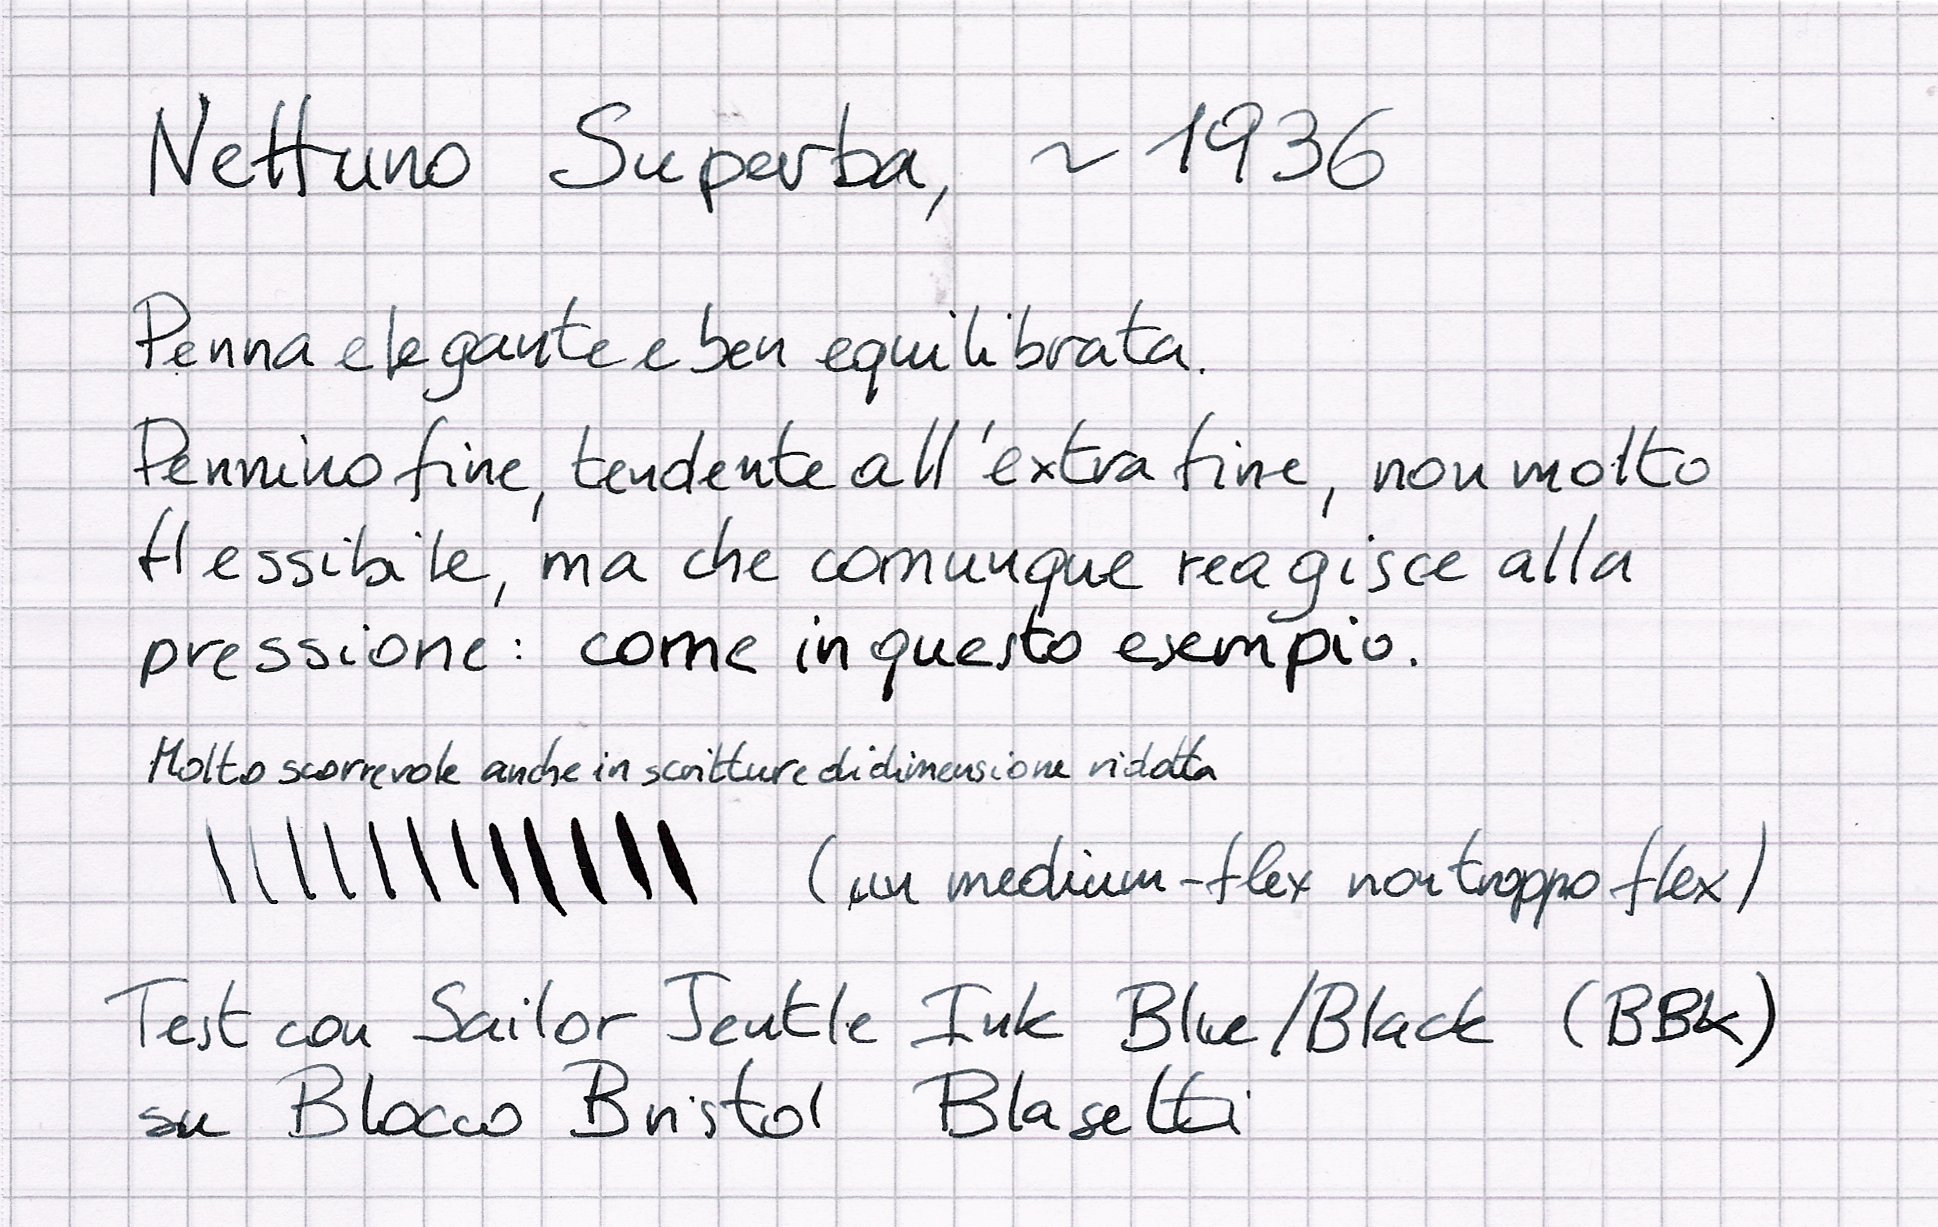 Nettuno Superba, ~ 1936
Penna elegante e ben equilibrata.
Pennino fine, tendente all'extra fine, non molto
flessibile, ma che comunque reagisce alla
pressione: come in questo esempio.
Molto scorrevole anche in scritture di dimensione ridotta
(un medium-flex non troppo flex)
Test con Sailor Jentle Ink Blue/Black (BBk)
su Blocco Bristol Blasetti